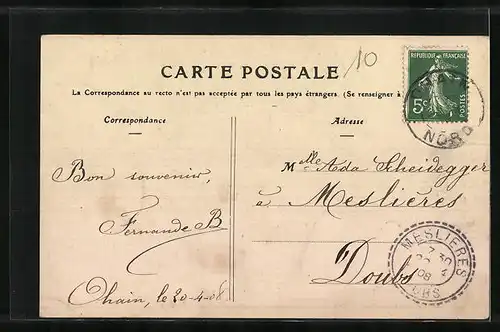 10
REPUBLIQUE FRANÇAISE
CARTE POSTALE
5c POSTES
La Correspondance au recto n'est pas acceptée par tous les pays étrangers. (Se renseigner à
NORD
Correspondance
Adresse
Mlle Ada Scheidegger
Bon souvenir,
à Meslières
Fernande B
MESLIERES
Doubs
08
Ohain, le 20-4-08